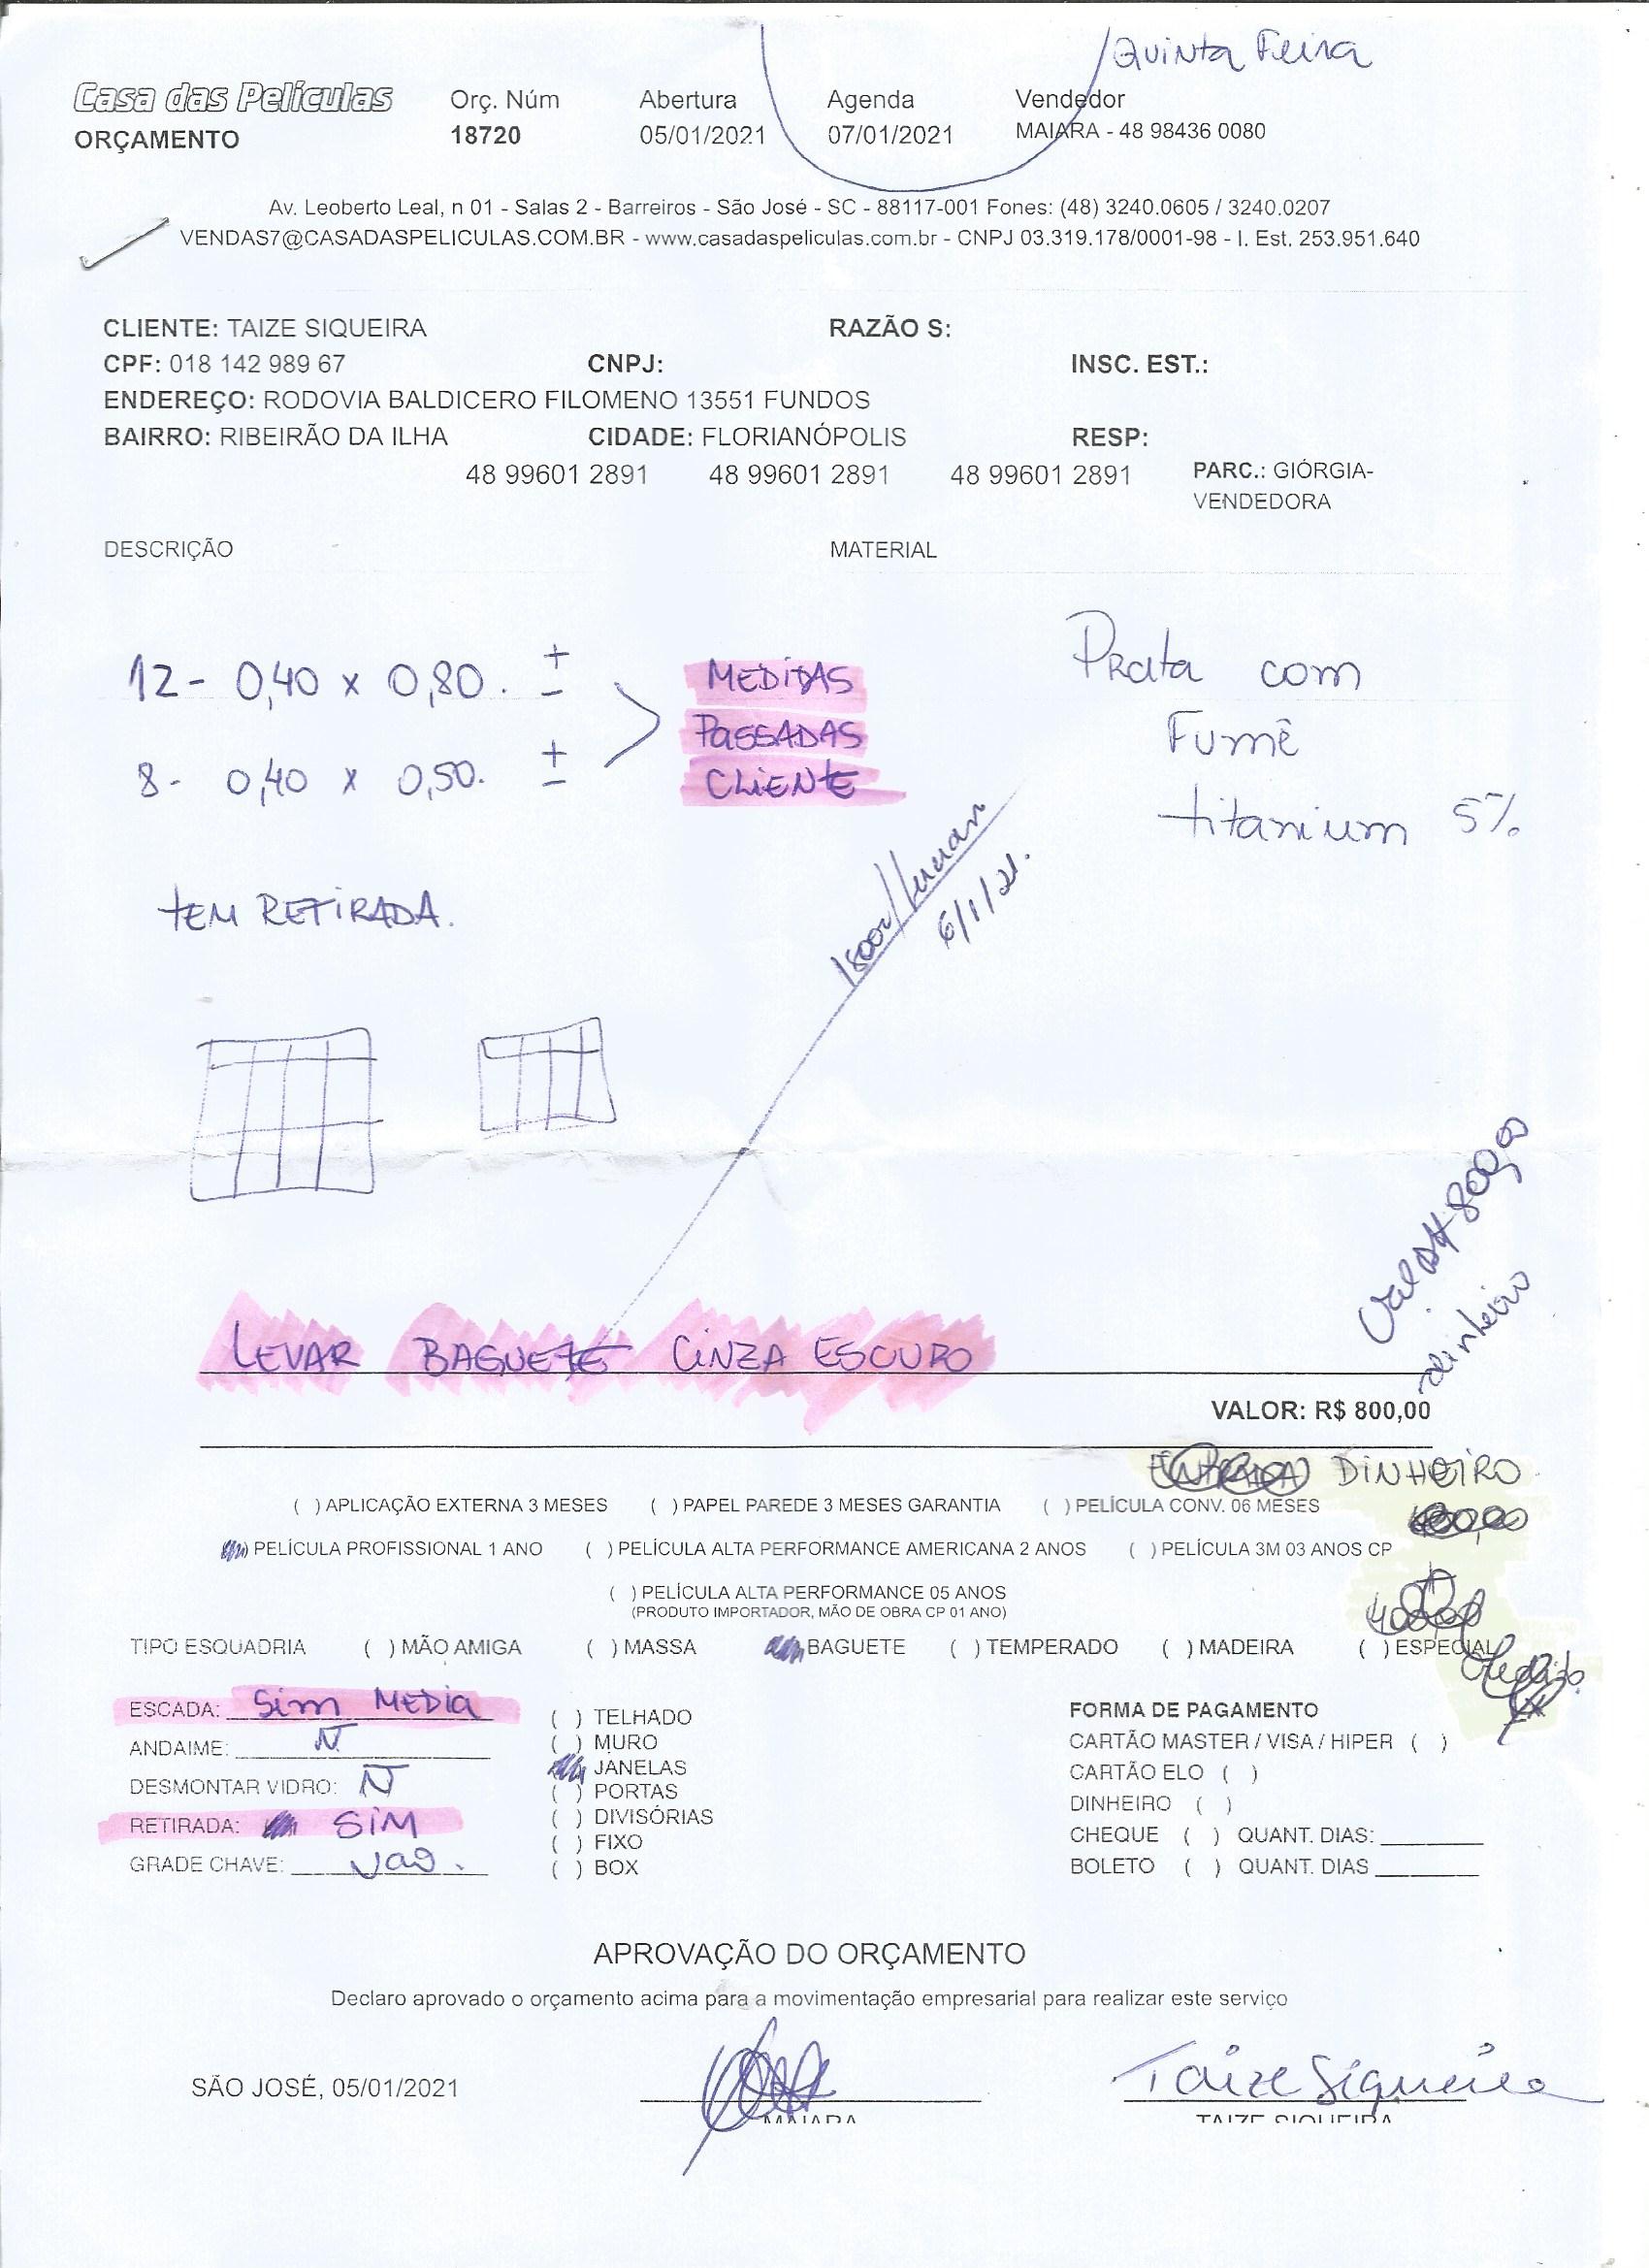 Quinta Feira
Casa das Películas Orç. Núm Abertura Agenda Vendedor
ORÇAMENTO 18720 05/01/2021 07/01/2021 MAIARA - 48 98436 0080
Av. Leoberto Leal, n 01 - Salas 2 - Barreiros - São José - SC - 88117-001 Fones: (48) 3240.0605 / 3240.0207
VENDAS7@CASADASPELICULAS.COM.BR - www.casadaspeliculas.com.br - CNPJ 03.319.178/0001-98 - I. Est. 253.951.640
CLIENTE: TAIZE SIQUEIRA RAZÃO S:
CPF: 018 142 989 67 CNPJ: INSC. EST.:
ENDEREÇO: RODOVIA BALDICERO FILOMENO 13551 FUNDOS
BAIRRO: RIBEIRÃO DA ILHA CIDADE: FLORIANÓPOLIS RESP:
48 99601 2891 48 99601 2891 48 99601 2891 PARC.: GIÓRGIA-
VENDEDORA
DESCRIÇÃO MATERIAL
12- 0,40 x 0,80. ± MEDIDAS
PASSADAS
8- 0,40 x 0,50. ± CLIENTE
Prata com
Fumê
titanium 5%
TEM RETIRADA.
6/1/21.
LEVAR BAGUETE CINZA ESCURO
800,00
dinheiro
VALOR: R$ 800,00
DINHEIRO
( ) APLICAÇÃO EXTERNA 3 MESES ( ) PAPEL PAREDE 3 MESES GARANTIA ( ) PELÍCULA CONV. 06 MESES
PELÍCULA PROFISSIONAL 1 ANO ( ) PELÍCULA ALTA PERFORMANCE AMERICANA 2 ANOS ( ) PELÍCULA 3M 03 ANOS CP
( ) PELÍCULA ALTA PERFORMANCE 05 ANOS
(PRODUTO IMPORTADOR, MÃO DE OBRA CP 01 ANO)
TIPO ESQUADRIA ( ) MÃO AMIGA ( ) MASSA BAGUETE ( ) TEMPERADO ( ) MADEIRA ( ) ESPECIAL
ESCADA: Sim MEDIA
ANDAIME: N
DESMONTAR VIDRO: N
RETIRADA: SIM
GRADE CHAVE: Nao.
( ) TELHADO
( ) MURO
JANELAS
( ) PORTAS
( ) DIVISÓRIAS
( ) FIXO
( ) BOX
FORMA DE PAGAMENTO
CARTÃO MASTER / VISA / HIPER ( )
CARTÃO ELO ( )
DINHEIRO ( )
CHEQUE ( ) QUANT. DIAS:
BOLETO ( ) QUANT. DIAS
APROVAÇÃO DO ORÇAMENTO
Declaro aprovado o orçamento acima para a movimentação empresarial para realizar este serviço
Taize Siqueira
SÃO JOSÉ, 05/01/2021
MAIARA TAIZE SIQUEIRA